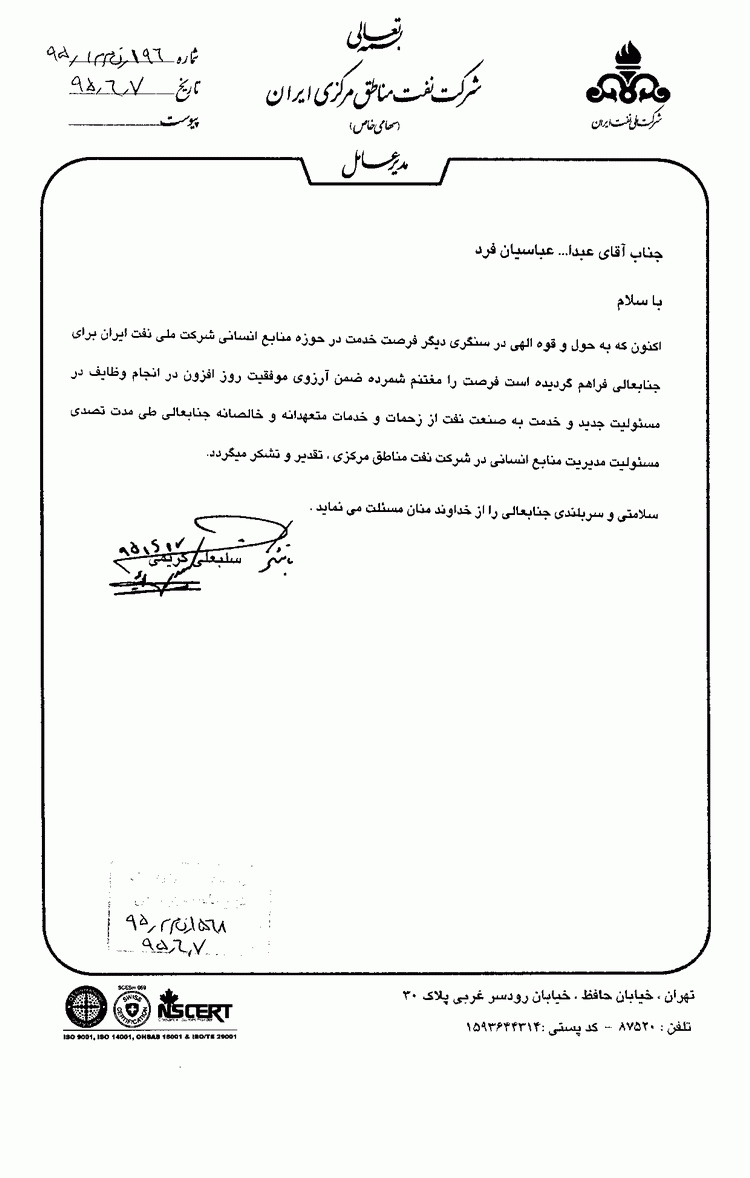 بسمه تعالی
شرکت نفت مناطق مرکزی ایران
(سهامی خاص)
مدیرعامل
شرکت ملی نفت ایران
شماره
تاریخ ۹۵,۶,۷
پیوست
جناب آقای عبدا... عباسیان فرد
با سلام
اکنون که به حول و قوه الهی در سنگری دیگر فرصت خدمت در حوزه منابع انسانی شرکت ملی نفت ایران برای
جنابعالی فراهم گردیده است فرصت را مغتنم شمرده ضمن آرزوی موفقیت روز افزون در انجام وظایف در
مسئولیت جدید و خدمت به صنعت نفت از زحمات و خدمات متعهدانه و خالصانه جنابعالی طی مدت تصدی
مسئولیت مدیریت منابع انسانی در شرکت نفت مناطق مرکزی ، تقدیر و تشکر میگردد.
سلامتی و سربلندی جنابعالی را از خداوند منان مسئلت می نماید .
با تشکر
سلبعلی کریمی
۹۵,۶,۷
تهران ، خیابان حافظ ، خیابان رودسر غربی پلاک ۳۰
تلفن : ۸۷۵۲۰ - کد پستی :۱۵۹۳۶۴۴۳۱۴
SWISS CERTIFICATION
NSCERT
ISO 9001, ISO 14001, OHSAS 18001 & ISO/TS 29001